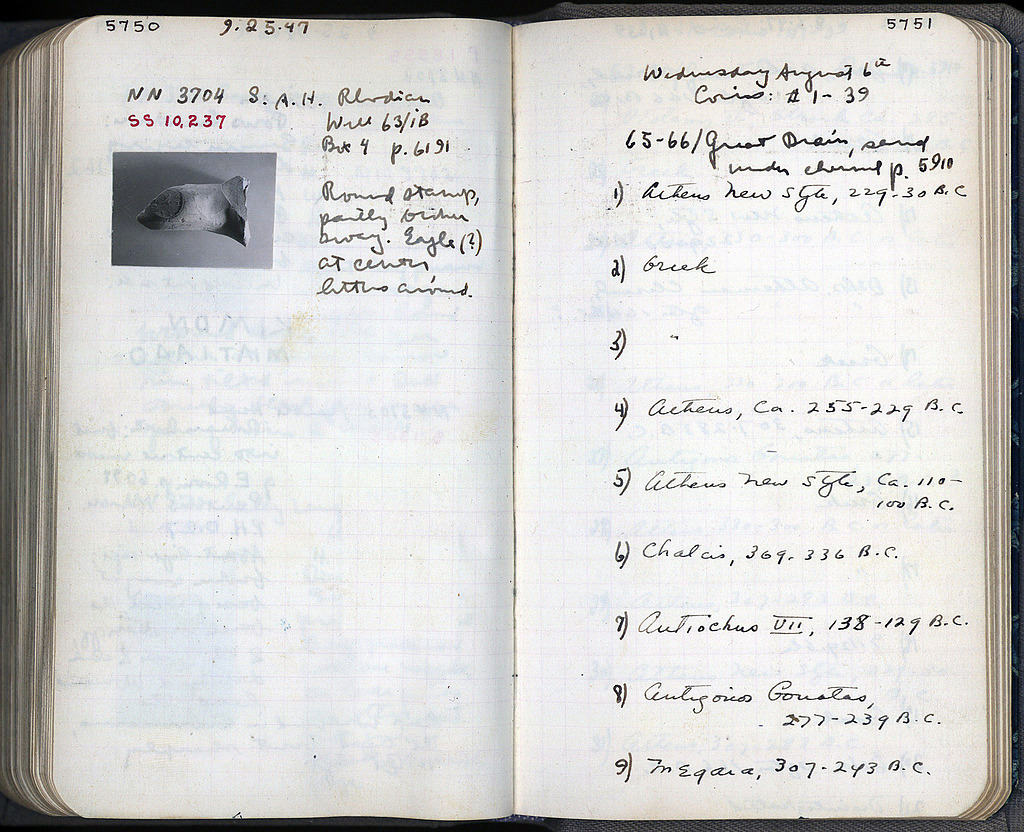 5750
9.25.47
NN 3704 S.A.H. Rhodian
SS 10,237
Well 63/IB
Box 4 p. 6191
Round stamp,
partly broken
away. Eagle (?)
at center,
letters around.
5751
Wednesday August 6th
Coins: # 1-39
65-66/ Great Drain, sand
under channel p. 5910
1) Athens New Style, 229-30 B.C
2) Greek
3) "
4) Athens, Ca. 255-229 B.C.
5) Athens New Style, Ca. 110-
100 B.C.
6) Chalcis, 369-336 B.C.
7) Antiochus VII, 138-129 B.C.
8) Antigonos Gonatas,
277-239 B.C.
9) Megara, 307-243 B.C.